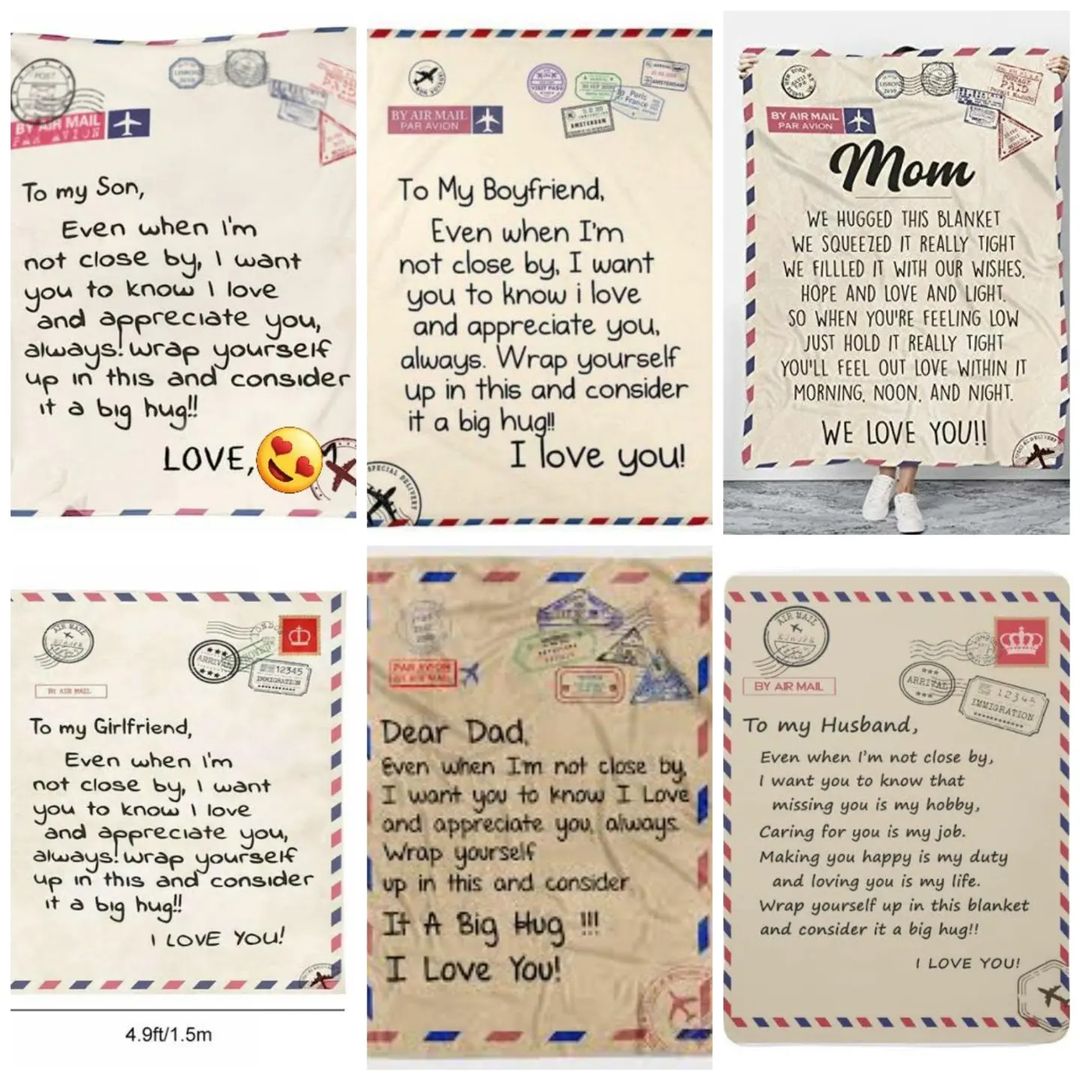 POST
BY AIR MAIL
PAR AVION
To my Son,
Even when I'm
not close by, I want
you to know I love
and appreciate you,
always! wrap yourself
up in this and consider
it a big hug!!
LOVE,
BY AIR MAIL
PAR AVION
VISIT PASS
AMSTERDAM
Paris
France
AMSTERDAM
To My Boyfriend,
Even when I'm
not close by, I want
you to know i love
and appreciate you,
always. Wrap yourself
up in this and consider
it a big hug!!
I love you!
SPECIAL DELIVERY
BY AIR MAIL
PAR AVION
PAID
Mom
WE HUGGED THIS BLANKET
WE SQUEEZED IT REALLY TIGHT
WE FILLLED IT WITH OUR WISHES,
HOPE AND LOVE AND LIGHT.
SO WHEN YOU'RE FEELING LOW
JUST HOLD IT REALLY TIGHT
YOU'LL FEEL OUT LOVE WITHIN IT
MORNING, NOON, AND NIGHT.
WE LOVE YOU!!
AIR MAIL
ARRIVAL
12345
IMMIGRATION
BY AIR MAIL
To my Girlfriend,
Even when I'm
not close by, I want
you to know I love
and appreciate you,
always! wrap yourself
up in this and consider
it a big hug!!
I LOVE YOU!
4.9ft/1.5m
PAR AVION
BY AIR MAIL
Dear Dad,
Even when I'm not close by,
I want you to know I Love
and appreciate you, always.
Wrap yourself
up in this and consider
It A Big Hug !!!
I Love You!
AIR MAIL
BY AIR MAIL
ARRIVAL
12345
IMMIGRATION
To my Husband,
Even when I'm not close by,
I want you to know that
missing you is my hobby,
Caring for you is my job.
Making you happy is my duty
and loving you is my life.
Wrap yourself up in this blanket
and consider it a big hug!!
I LOVE YOU!